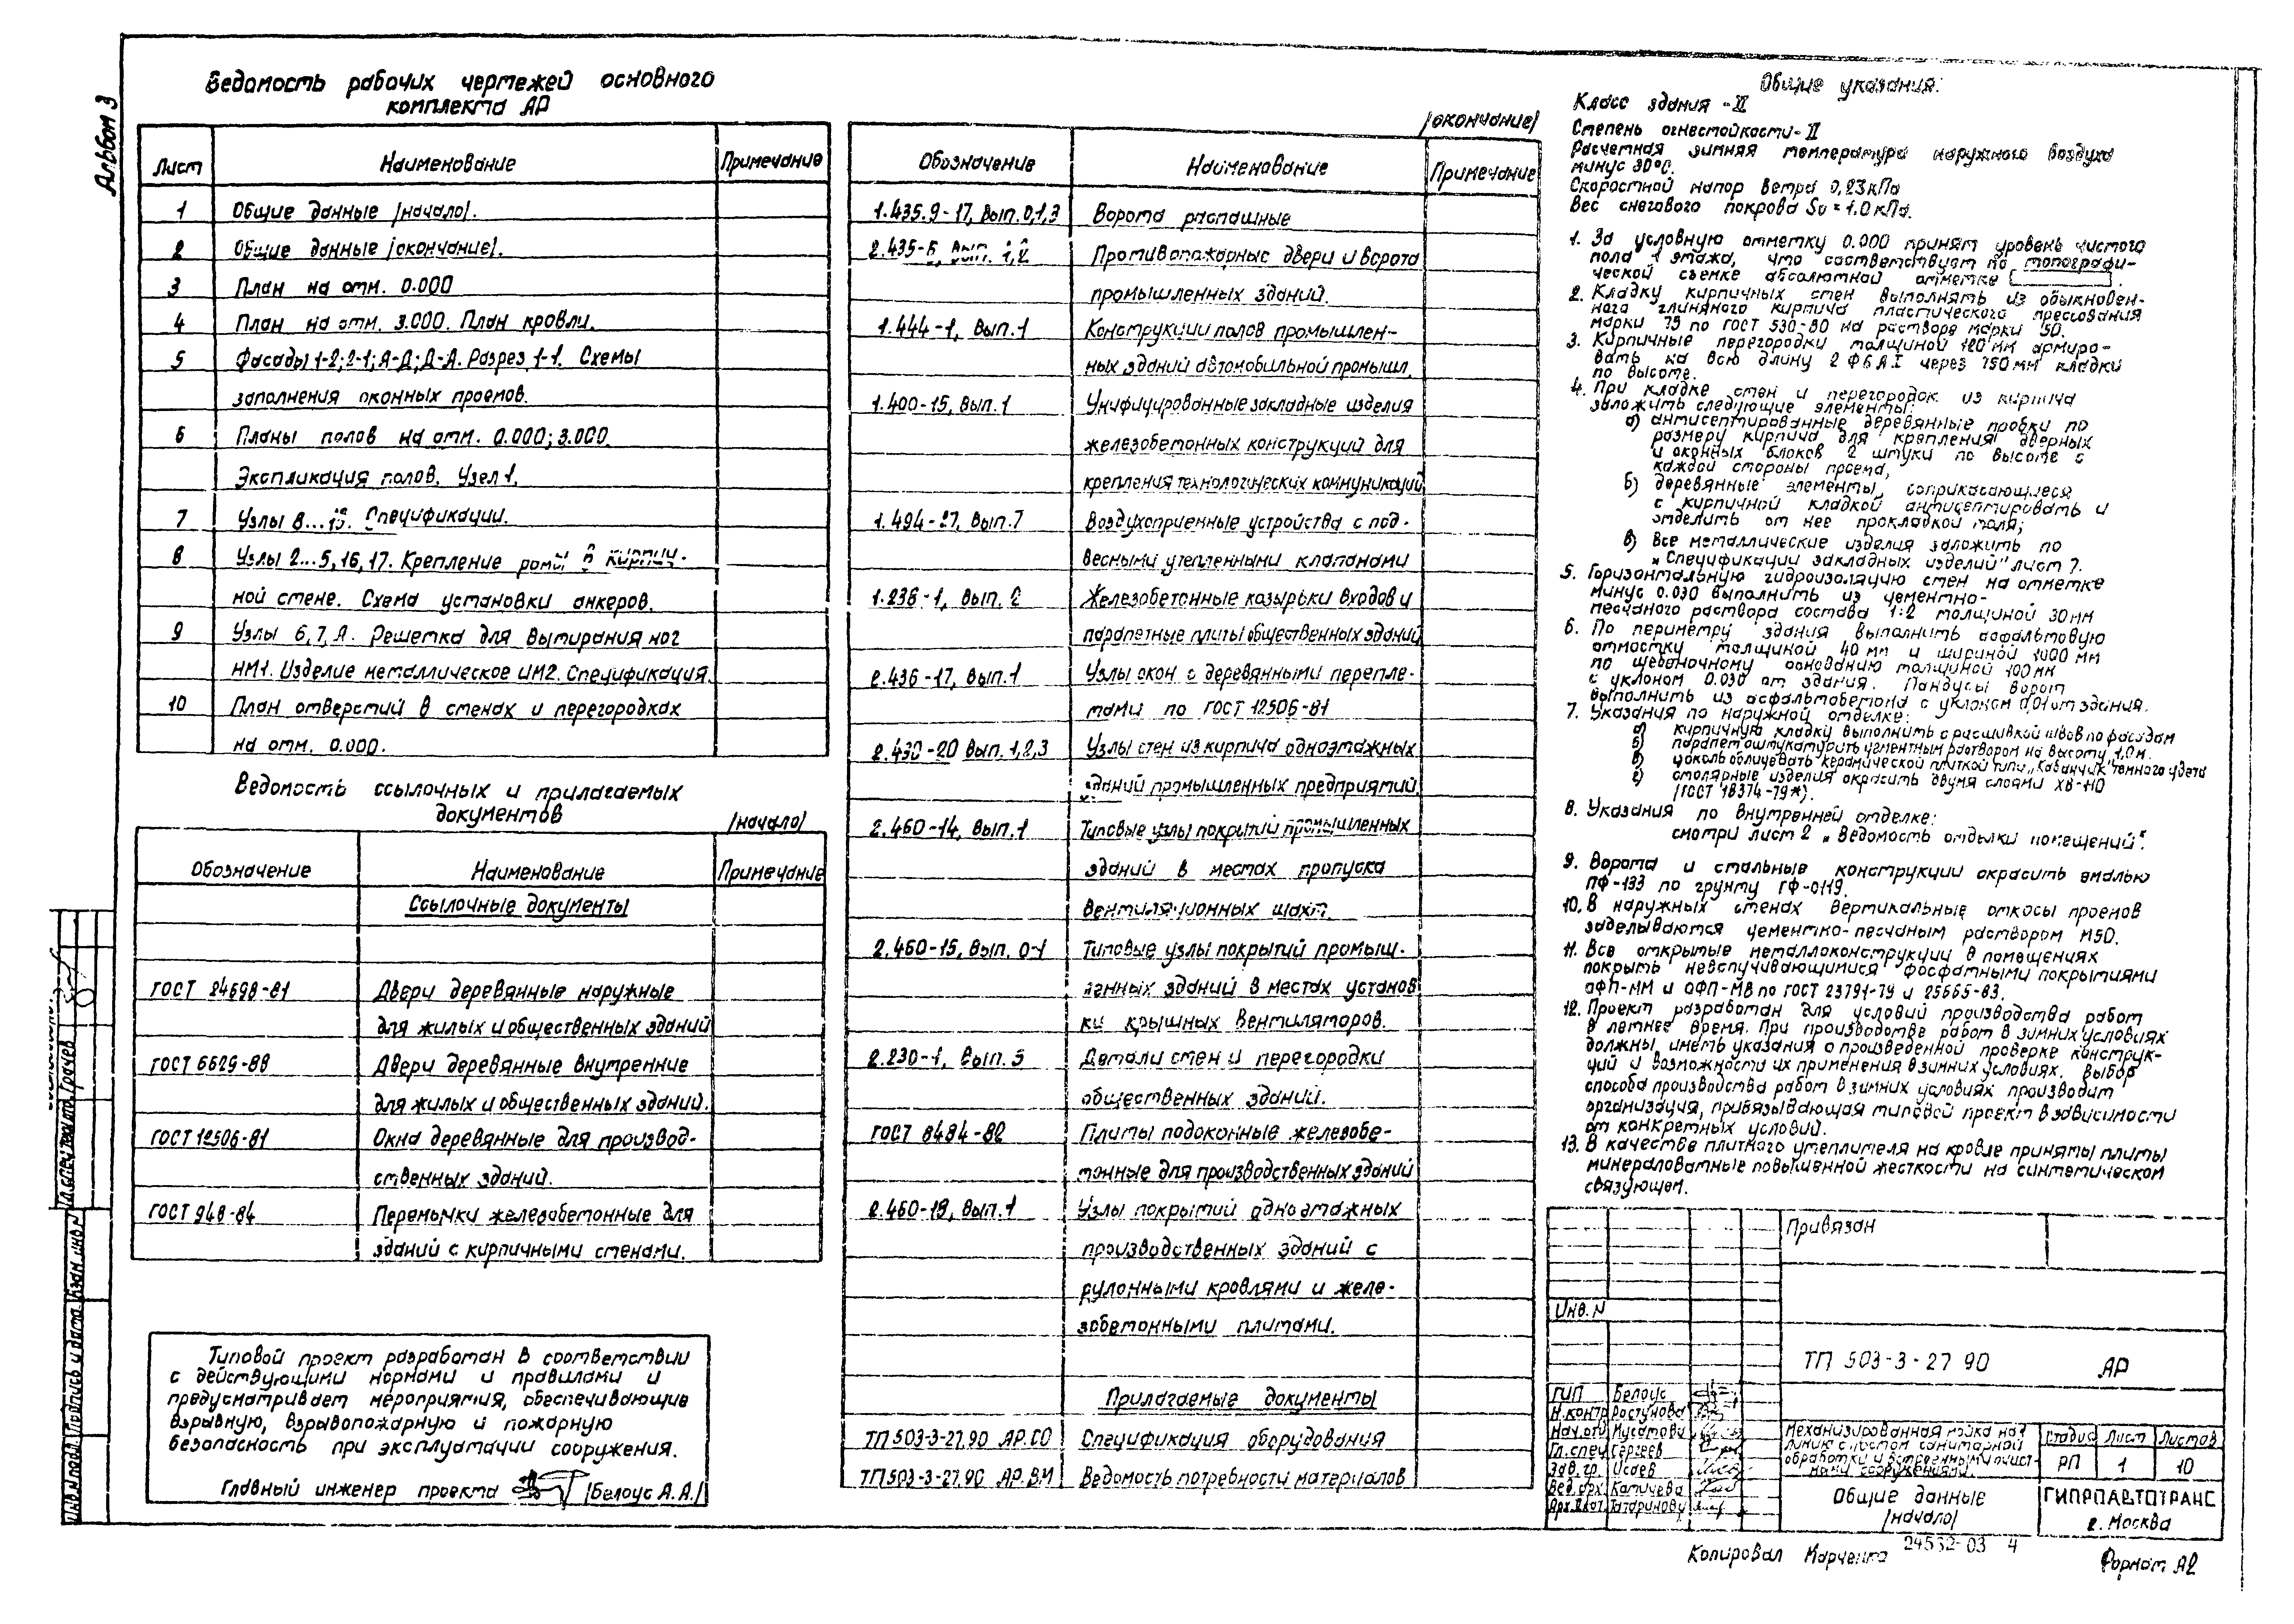 Альбом 3
Ведомость рабочих чертежей основного
комплекта АР
Лист Наименование Примечание
1 Общие данные /начало/.
2 Общие данные /окончание/.
3 План на отм. 0.000
4 План на отм. 3.000. План кровли.
5 Фасады 1-2; 2-1; А-Д; Д-А. Разрез 1-1. Схемы
заполнения оконных проемов.
6 Планы полов на отм. 0.000; 3.000.
Экспликация полов. Узел 1.
7 Узлы 8...15. Спецификации.
8 Узлы 2...5, 16, 17. Крепление рамы в кирпич-
ной стене. Схема установки анкеров.
9 Узлы 6, 7, А. Решетка для вытирания ног
НМ1. Изделие металлическое ИМ2. Спецификация.
10 План отверстий в стенах и перегородках
на отм. 0.000.
Ведомость ссылочных и прилагаемых
документов
/начало/
Обозначение Наименование Примечание
Ссылочные документы
ГОСТ 24698-81 Двери деревянные наружные
для жилых и общественных зданий
ГОСТ 6629-88 Двери деревянные внутренние
для жилых и общественных зданий.
ГОСТ 12506-81 Окна деревянные для производ-
ственных зданий.
ГОСТ 948-84 Перемычки железобетонные для
зданий с кирпичными стенами.
Типовой проект разработан в соответствии
с действующими нормами и правилами и
предусматривает мероприятия, обеспечивающие
взрывную, взрывопожарную и пожарную
безопасность при эксплуатации сооружения.
Главный инженер проекта /Белоус А.А./
/окончание/
Обозначение Наименование Примечание
1.435.9-17, вып. 0,1,3 Ворота распашные
2.435-6, вып. 1,2 Противопожарные двери и ворота
промышленных зданий.
1.444-1, вып. 1 Конструкции полов промышлен-
ных зданий автомобильной промышл.
1.400-15, вып. 1 Унифицированные закладные изделия
железобетонных конструкций для
крепления технологических коммуникаций
1.494-27, вып. 7 Воздухоприемные устройства с под-
весными утепленными клапанами
1.238-1, вып. 2 Железобетонные козырьки входов и
парапетные плиты общественных зданий
2.436-17, вып. 1 Узлы окон с деревянными перепле-
тами по ГОСТ 12506-81
2.430-20 вып. 1,2,3 Узлы стен из кирпича одноэтажных
зданий промышленных предприятий.
2.460-14, вып. 1 Типовые узлы покрытий промышленных
зданий в местах пропуска
вентиляционных шахт.
2.460-15, вып. 0-1 Типовые узлы покрытий промыш-
ленных зданий в местах установ
ки крышных вентиляторов.
2.230-1, вып. 5 Детали стен и перегородки
общественных зданий.
ГОСТ 8484-82 Плиты подоконные железобе-
тонные для производственных зданий
2.460-18, вып. 1 Узлы покрытий одноэтажных
производственных зданий с
рулонными кровлями и желе-
зобетонными плитами.
Прилагаемые документы
ТП 503-3-27.90 АР.СО Спецификация оборудования
ТП 503-3-27.90 АР.ВМ Ведомость потребности материалов
Общие указания:
Класс здания - II
Степень огнестойкости - II
Расчетная зимняя температура наружного воздуха
минус 30°С.
Скоростной напор ветра 0,23 кПа
Вес снегового покрова So = 1.0 кПа.
1. За условную отметку 0.000 принят уровень чистого
пола 1 этажа, что соответствует по топографи-
ческой съемке абсолютной отметке
2. Кладку кирпичных стен выполнять из обыкновен-
ного глиняного кирпича пластического прессования
марки 75 по ГОСТ 530-80 на растворе марки 50.
3. Кирпичные перегородки толщиной 120 мм армиро-
вать на всю длину 2 Ф6 А I через 750 мм кладки
по высоте.
4. При кладке стен и перегородок из кирпича
заложить следующие элементы:
а) антисептированные деревянные пробки по
размеру кирпича для крепления дверных
и оконных блоков 2 штуки по высоте с
каждой стороны проема,
б) деревянные элементы, соприкасающиеся
с кирпичной кладкой антисептировать и
отделить от нее прокладкой толя;
в) все металлические изделия заложить по
„Спецификации закладных изделий" лист 7.
5. Горизонтальную гидроизоляцию стен на отметке
минус 0.030 выполнить из цементно-
песчаного раствора состава 1:2 толщиной 30 мм
6. По периметру здания выполнить асфальтовую
отмостку толщиной 40 мм и шириной 1000 мм
по щебеночному основанию толщиной 100 мм
с уклоном 0.030 от здания. Пандусы ворот
выполнить из асфальтобетона с уклоном 0,01 от здания.
7. Указания по наружной отделке:
а) кирпичную кладку выполнить с расшивкой швов по фасадам
б) парапет оштукатурить цементным раствором на высоту 1,0 м.
в) цоколь облицевать керамической плиткой типа „Кабанчик" темного цвета
г) столярные изделия окрасить двумя слоями ХВ-110
(ГОСТ 18374-79*).
8. Указания по внутренней отделке:
смотри лист 2 „Ведомость отделки помещений".
9. Ворота и стальные конструкции окрасить эмалью
ПФ-133 по грунту ГФ-0119.
10. В наружных стенах вертикальные откосы проемов
заделываются цементно-песчаным раствором М50.
11. Все открытые металлоконструкции в помещениях
покрыть невспучивающимися фосфатными покрытиями
ОФП-ММ и ОФП-МВ по ГОСТ 23791-79 и 25665-83.
12. Проект разработан для условий производства работ
в летнее время. При производстве работ в зимних условиях
должны иметь указания о произведенной проверке конструк-
ций и возможности их применения в зимних условиях. Выбор
способа производства работ в зимних условиях производит
организация, привязывающая типовой проект в зависимости
от конкретных условий.
13. В качестве плитного утеплителя на кровле приняты плиты
минераловатные повышенной жесткости на синтетическом
связующем.
Привязан
Инв. N
ТП 503-3-27 90 АР
ГИП Белоус
Н.контр Растунова
Нач.отд Мусатова
Гл.спец Сергеев
Зав.гр. Исаев
Вед.арх. Камичева
Татаринову
Механизированная мойка на 1
линию с постом санитарной
обработки и встроенными очист-
ными сооружениями.
Стадия Лист Листов
РП 1 10
Общие данные
/начало/
ГИПРОАВТОТРАНС
г. Москва
Копировал Марченко 24532-03 4
Формат А2
Гл.спец. Грачев
Взам инв N
Подпись и дата
Инв N подл.